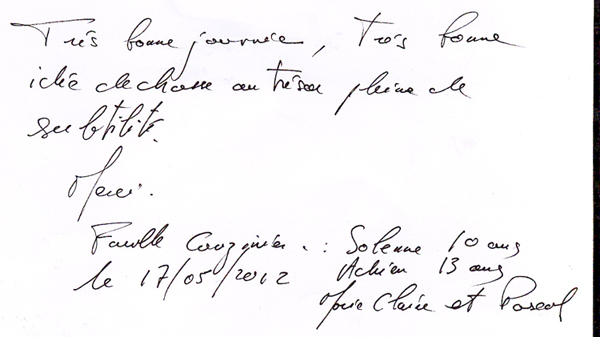 Très bonne journée, très bonne
idée de chasse au trésor pleine de
subtilité.
Merci.
Famille : Solenne 10 ans
le 17/05/2012 Adrien 13 ans
Marie Claire et Pascal